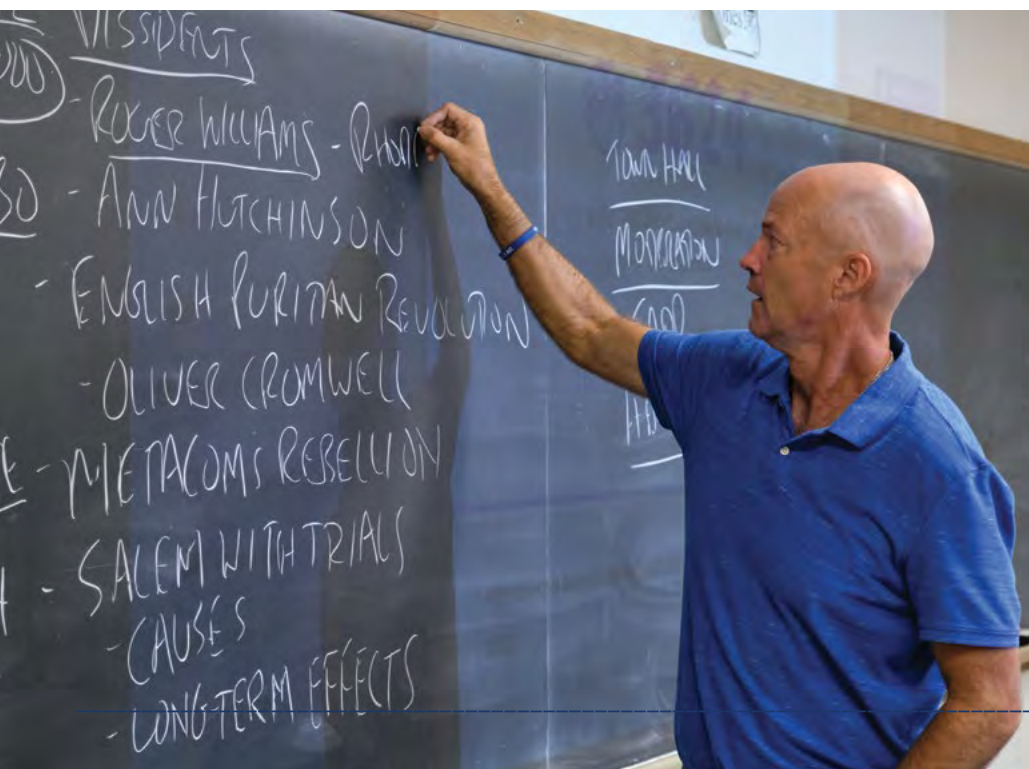 DISSIDENTS
- ROGER WILLIAMS - RHOD
30 - ANN HUTCHINSON
- ENGLISH PURITAN REVOLUTION
- OLIVER CROMWELL
- METACOMS REBELLION
- SALEM WITH TRIALS
- CAUSES
- LONG-TERM EFFECTS
TOWN HALL
MODERATION